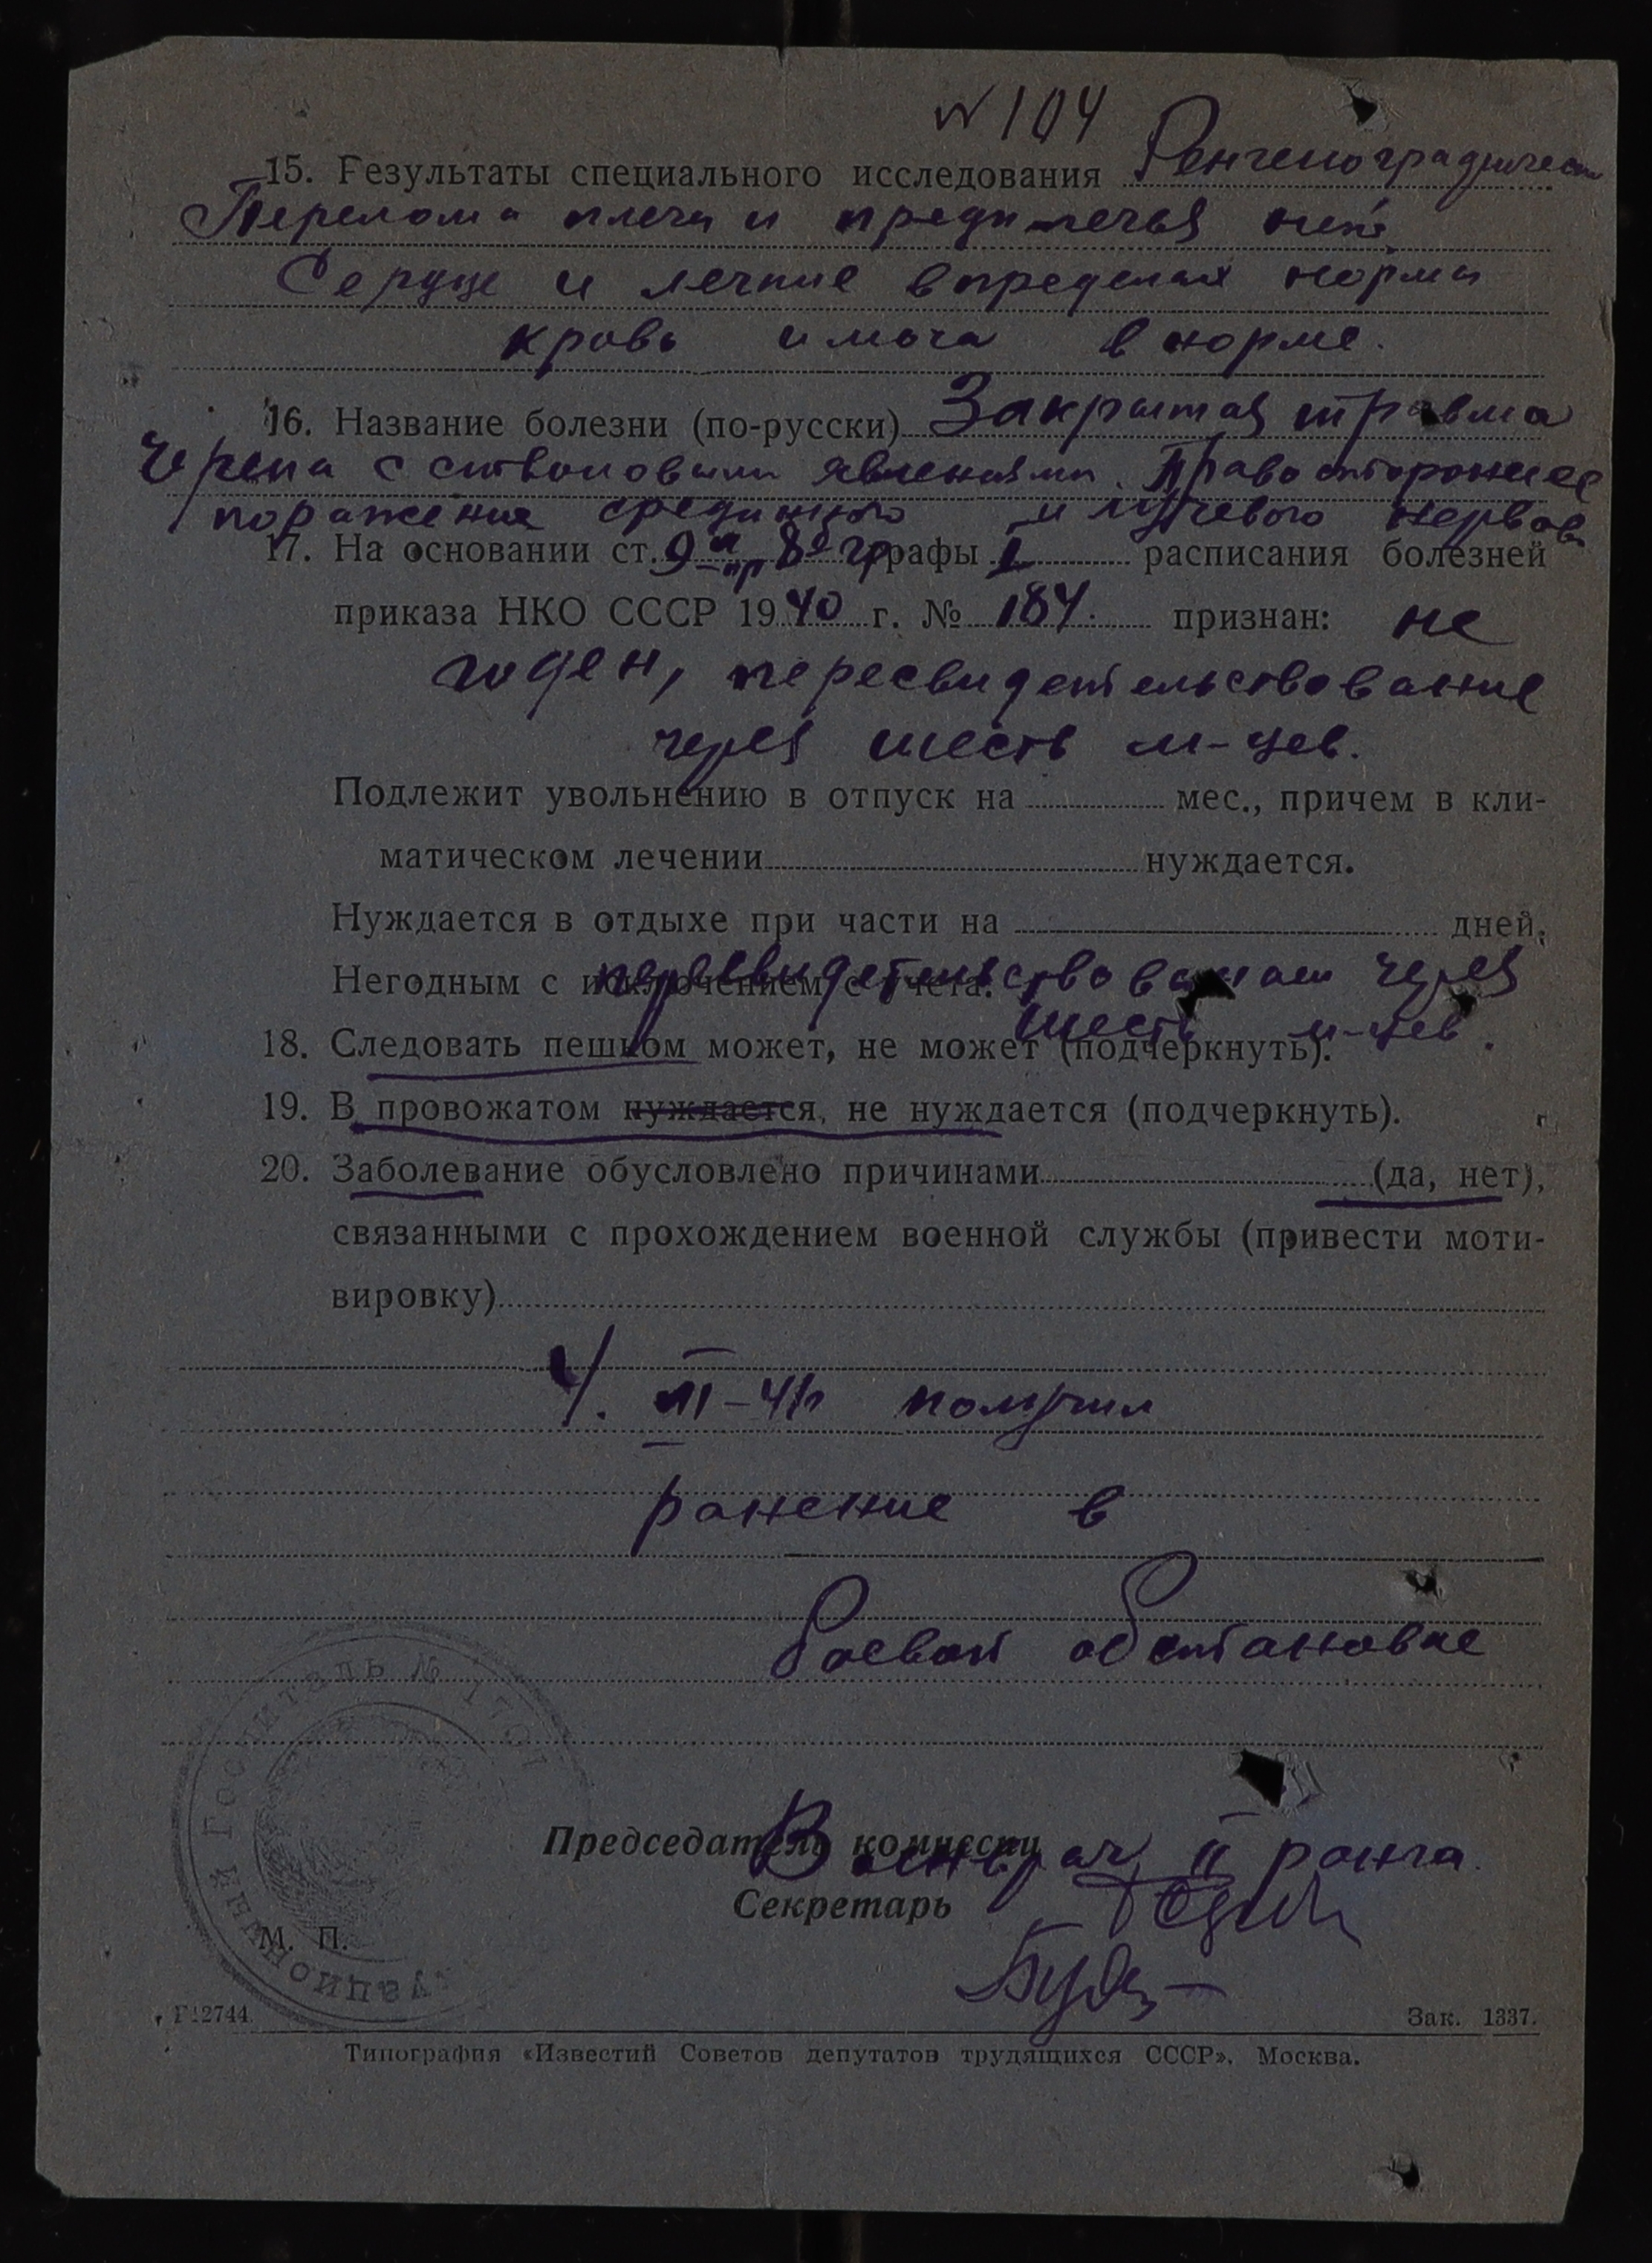 № 104
15. Результаты специального исследования Ренгенографически
Перелома плеча и предплечья нет
Сердце и легкие в пределах нормы
кровь и моча в норме.
16. Название болезни (по-русски) Закрытая травма
черепа с стволовыми явлениями. Правостороннее
поражение срединного и лучевого нервов.
17. На основании ст. 9 графы I расписания болезней
приказа НКО СССР 1940 г. № 184. признан: не
годен, пересвидетельствование
через шесть м-цев.
Подлежит увольнению в отпуск на мес., причем в кли-
матическом лечении нуждается.
Нуждается в отдыхе при части на дней.
пересвидетельствованием через
Негодным с исключением с учета.
шесть м-цев.
18. Следовать пешком может, не может (подчеркнуть).
19. В провожатом нуждается, не нуждается (подчеркнуть).
20. Заболевание обусловлено причинами (да, нет),
связанными с прохождением военной службы (привести моти-
вировку)
получил
ранение в
боевой обстановке
Председатель комиссии Военврач II ранга.
Секретарь
М. П.
Госпиталь № 1701
Г12744.
Зак. 1337.
Типография «Известий Советов депутатов трудящихся СССР». Москва.